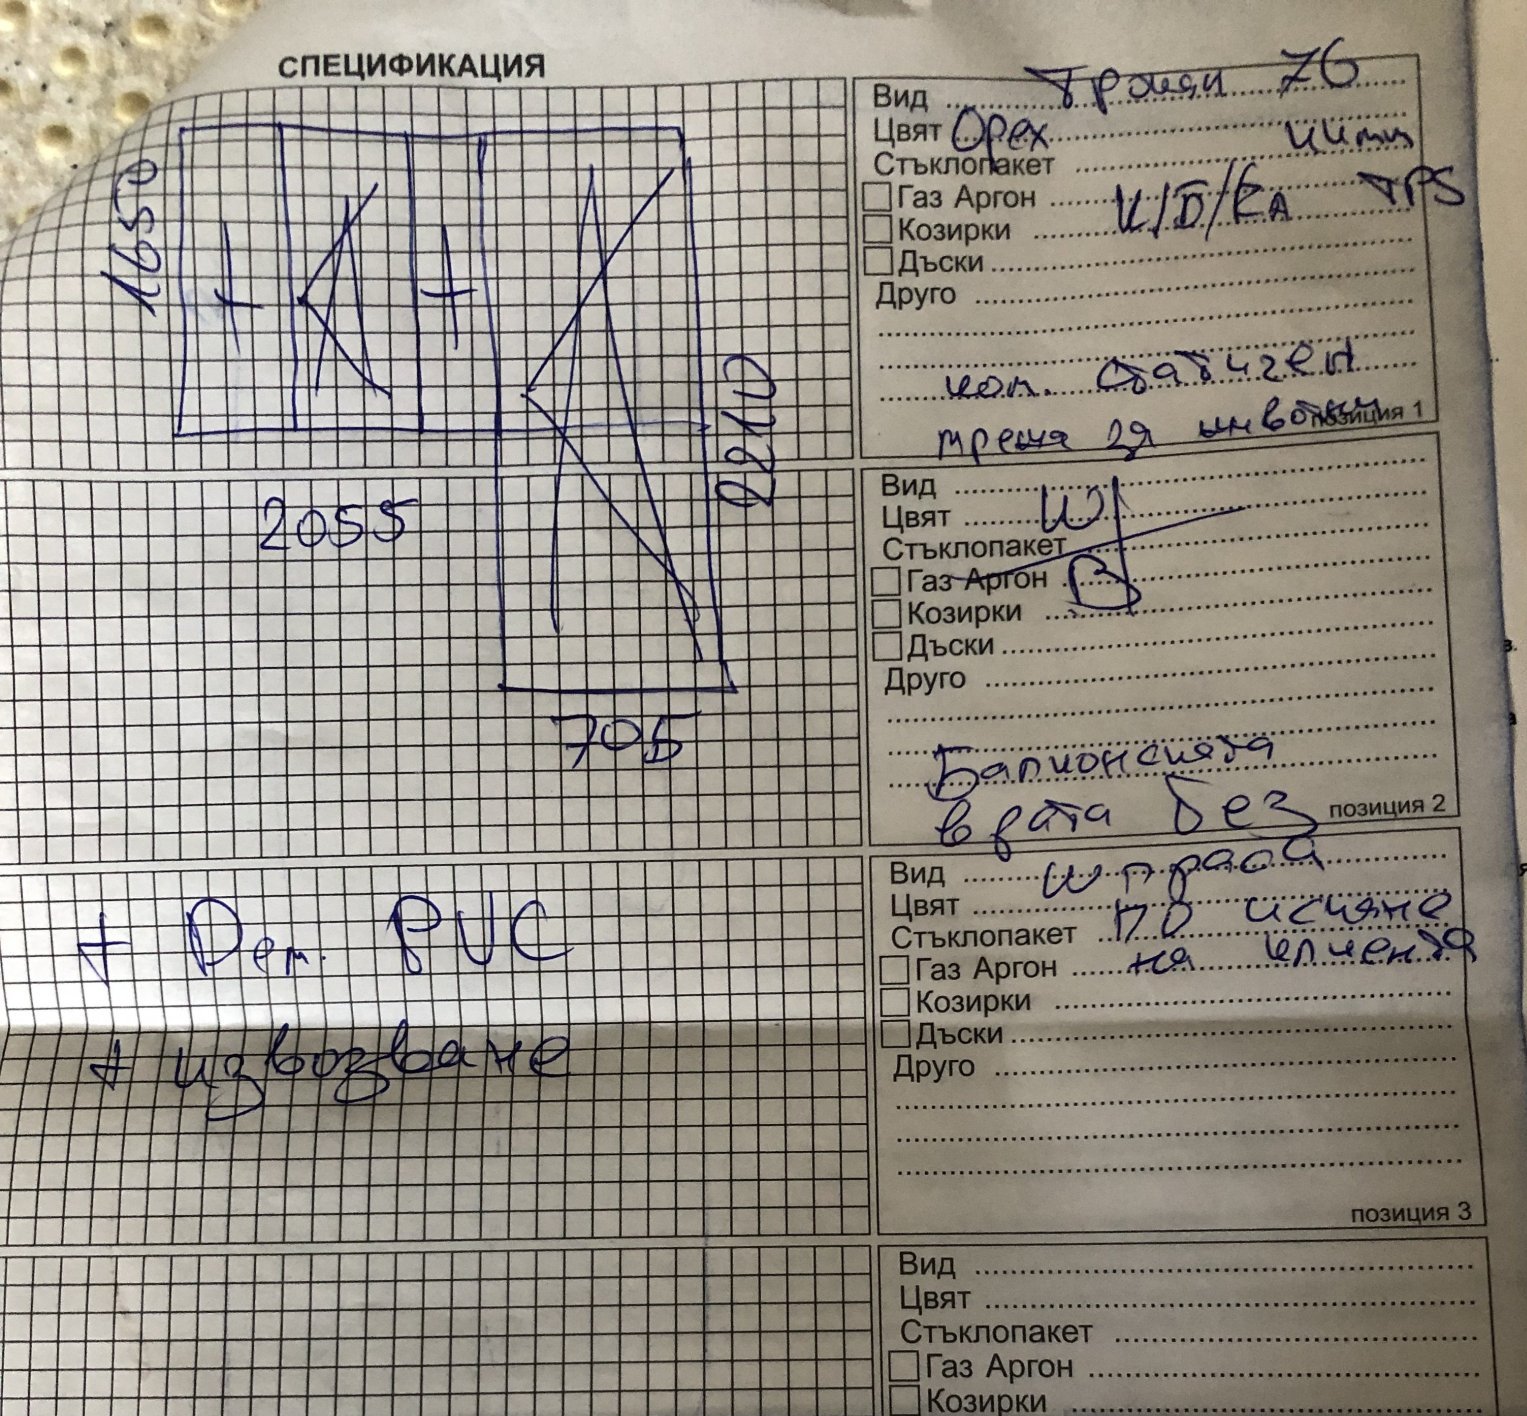 СПЕЦИФИКАЦИЯ
1650
2210
2055
705
+ Дем. PVC
+ извозване
Вид Троян 76
Цвят Орех
Стъклопакет
Газ Аргон К/Б/Ка TPS
Козирки
Дъски
Друго
кол. статичен
позиция 1
Вид
Цвят
Стъклопакет
Газ Аргон
Козирки
Дъски
Друго
Балконската
врата без позиция 2
Вид щраба
Цвят
Стъклопакет по искане
Газ Аргон на клиента
Козирки
Дъски
Друго
позиция 3
Вид
Цвят
Стъклопакет
Газ Аргон
Козирки